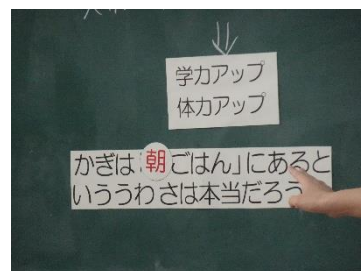 学力アップ
体力アップ
かぎは「朝ごはん」にあると
いううわさは本当だろう